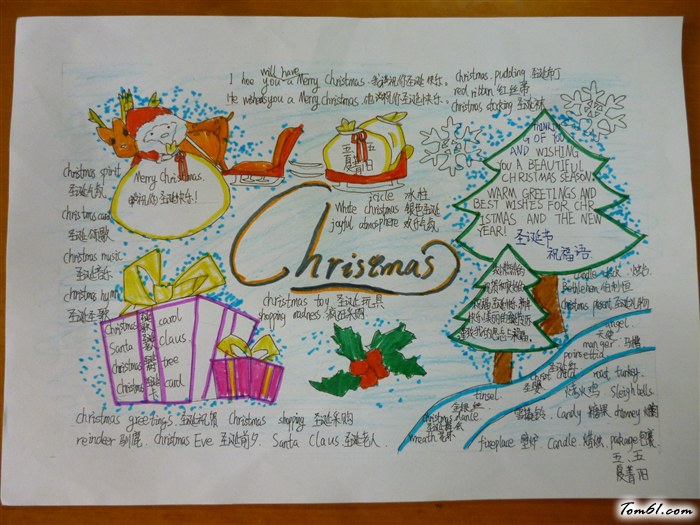 will have
I hope you a Merry Christmas. 我希望你圣诞快乐。
He wishes you a Merry Christmas. 他祝你圣诞快乐.
christmas pudding 圣诞布丁
red ribbon 红丝带
christmas stocking 圣诞袜
THANKS
G OF YOU
AND WISHING
YOU A BEAUTIFUL
CHRISTMAS SEASON
WARM GREETINGS AND
BEST WISHES FOR CHR
ISTMAS AND THE NEW
YEAR!
圣诞节
祝福语.
五、五
夏菁阳
Merry Christmas.
祝你圣诞快乐!
christmas spirit
圣诞气氛
christmas carol
圣诞颂歌
christmas music
圣诞音乐
christmas hymn
圣诞圣歌
icicle 冰柱
White christmas 银色圣诞
joyful atmosphere 欢乐气氛
Christmas
christmas toy 圣诞玩具
shopping madness 疯狂采购
Christmas carol
Santa claus
Christmas tree
Christmas card
candle 蜡烛
Bethlehem 伯利恒
Christmas present 圣诞礼物
angel.
天使
manger 马槽
poinsettia
christ child
圣婴
roast turkey.
烤火鸡
Sleigh bells
tinsel
Candy 糖果
chimney
christmas dance
wreath 花环
fireplace 壁炉
Candle 蜡烛
package 包裹
christmas greetings 圣诞祝贺
Christmas shoping 圣诞采购
reindeer 驯鹿.
christmas Eve 圣诞前夕
Santa Claus 圣诞老人
五、五
夏菁阳
Tom61.com